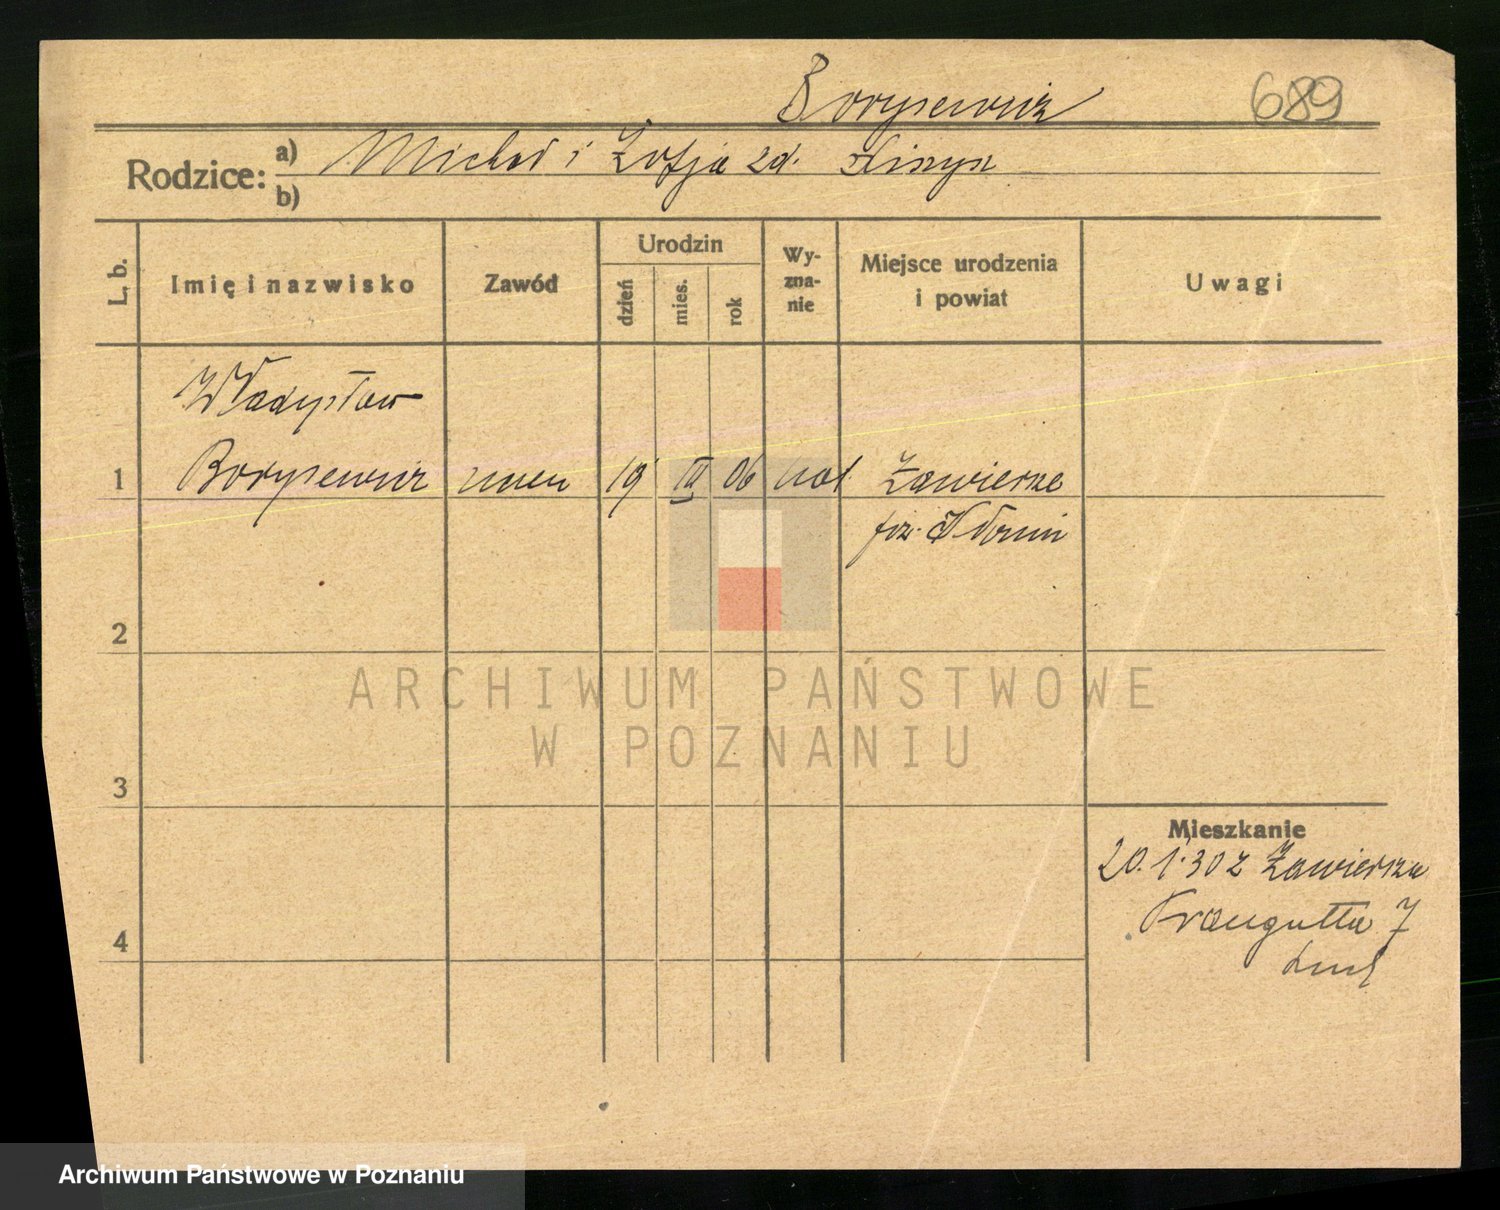 Borysewicz 689
Rodzice: a) Michał i Zofja zd.
b)
L. b. Imię i nazwisko Zawód Urodzin dzień mies. rok Wy-zna-nie Miejsce urodzenia i powiat Uwagi
Władysław
1 Borysewicz uczeń 19 III 06 kat. Zawiercie
2
3
Mieszkanie
20.1.30 z Zawiercia
4 Traugutta 7
ARCHIWUM PAŃSTWOWE
W POZNANIU
Archiwum Państwowe w Poznaniu